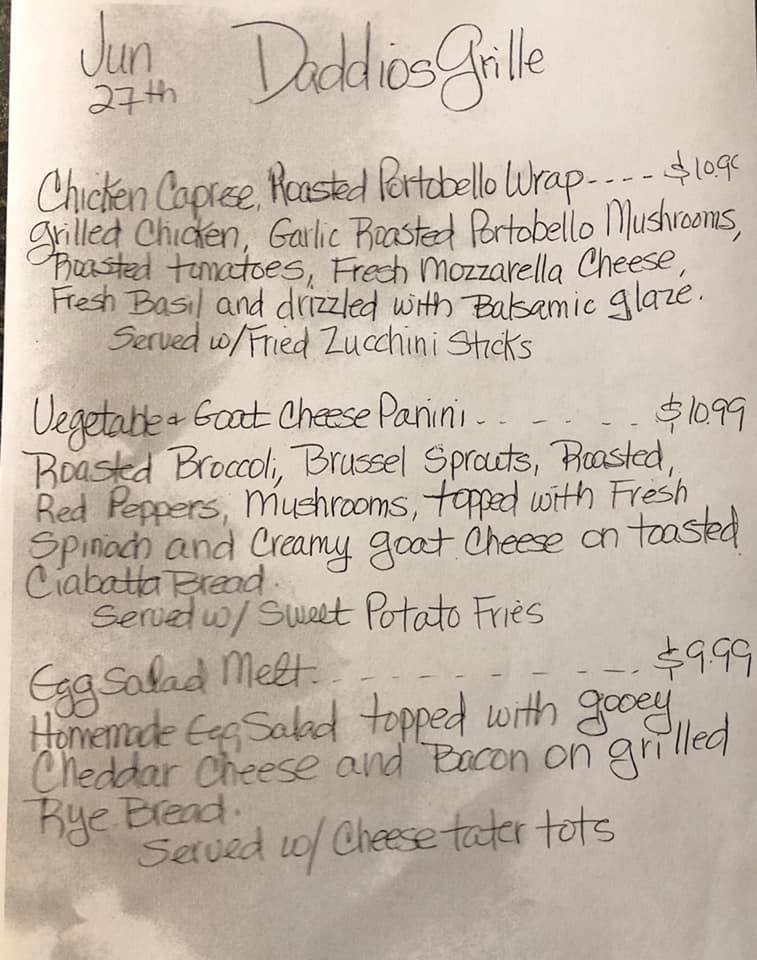 Jun Daddios Grille
27th
Chicken Caprese, Roasted Portobello Wrap---- $10.99
grilled Chicken, Garlic Roasted Portobello Mushrooms,
Roasted tomatoes, Fresh Mozzarella Cheese,
Fresh Basil and drizzled with Balsamic glaze.
Served w/Fried Zucchini Sticks
Vegetable & Goat Cheese Panini- - - - - - $10.99
Roasted Broccoli, Brussel Sprouts, Roasted,
Red Peppers, Mushrooms, topped with Fresh
Spinach and Creamy goat Cheese on toasted
Ciabatta Bread.
Served w/ Sweet Potato Fries
Egg Salad Melt. - - - - - - - - - - $9.99
Homemade Egg Salad topped with gooey
Cheddar Cheese and Bacon on grilled
Rye Bread.
Served w/ Cheese tater tots